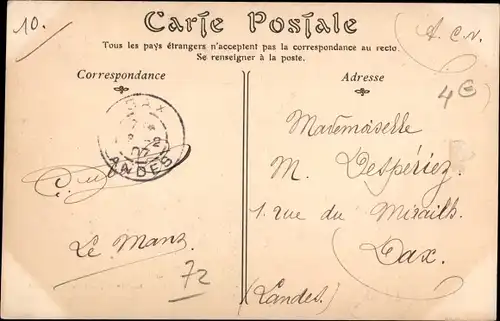 10.
Carte Postale
A. C. N.
Tous les pays étrangers n'acceptent pas la correspondance au recto.
Se renseigner à la poste.
Correspondance
Adresse
4€
DAX
07
LANDES
Mademoiselle
M. Despériez
1 rue du Mirailh.
Dax.
(Landes.)
Le Mans
72